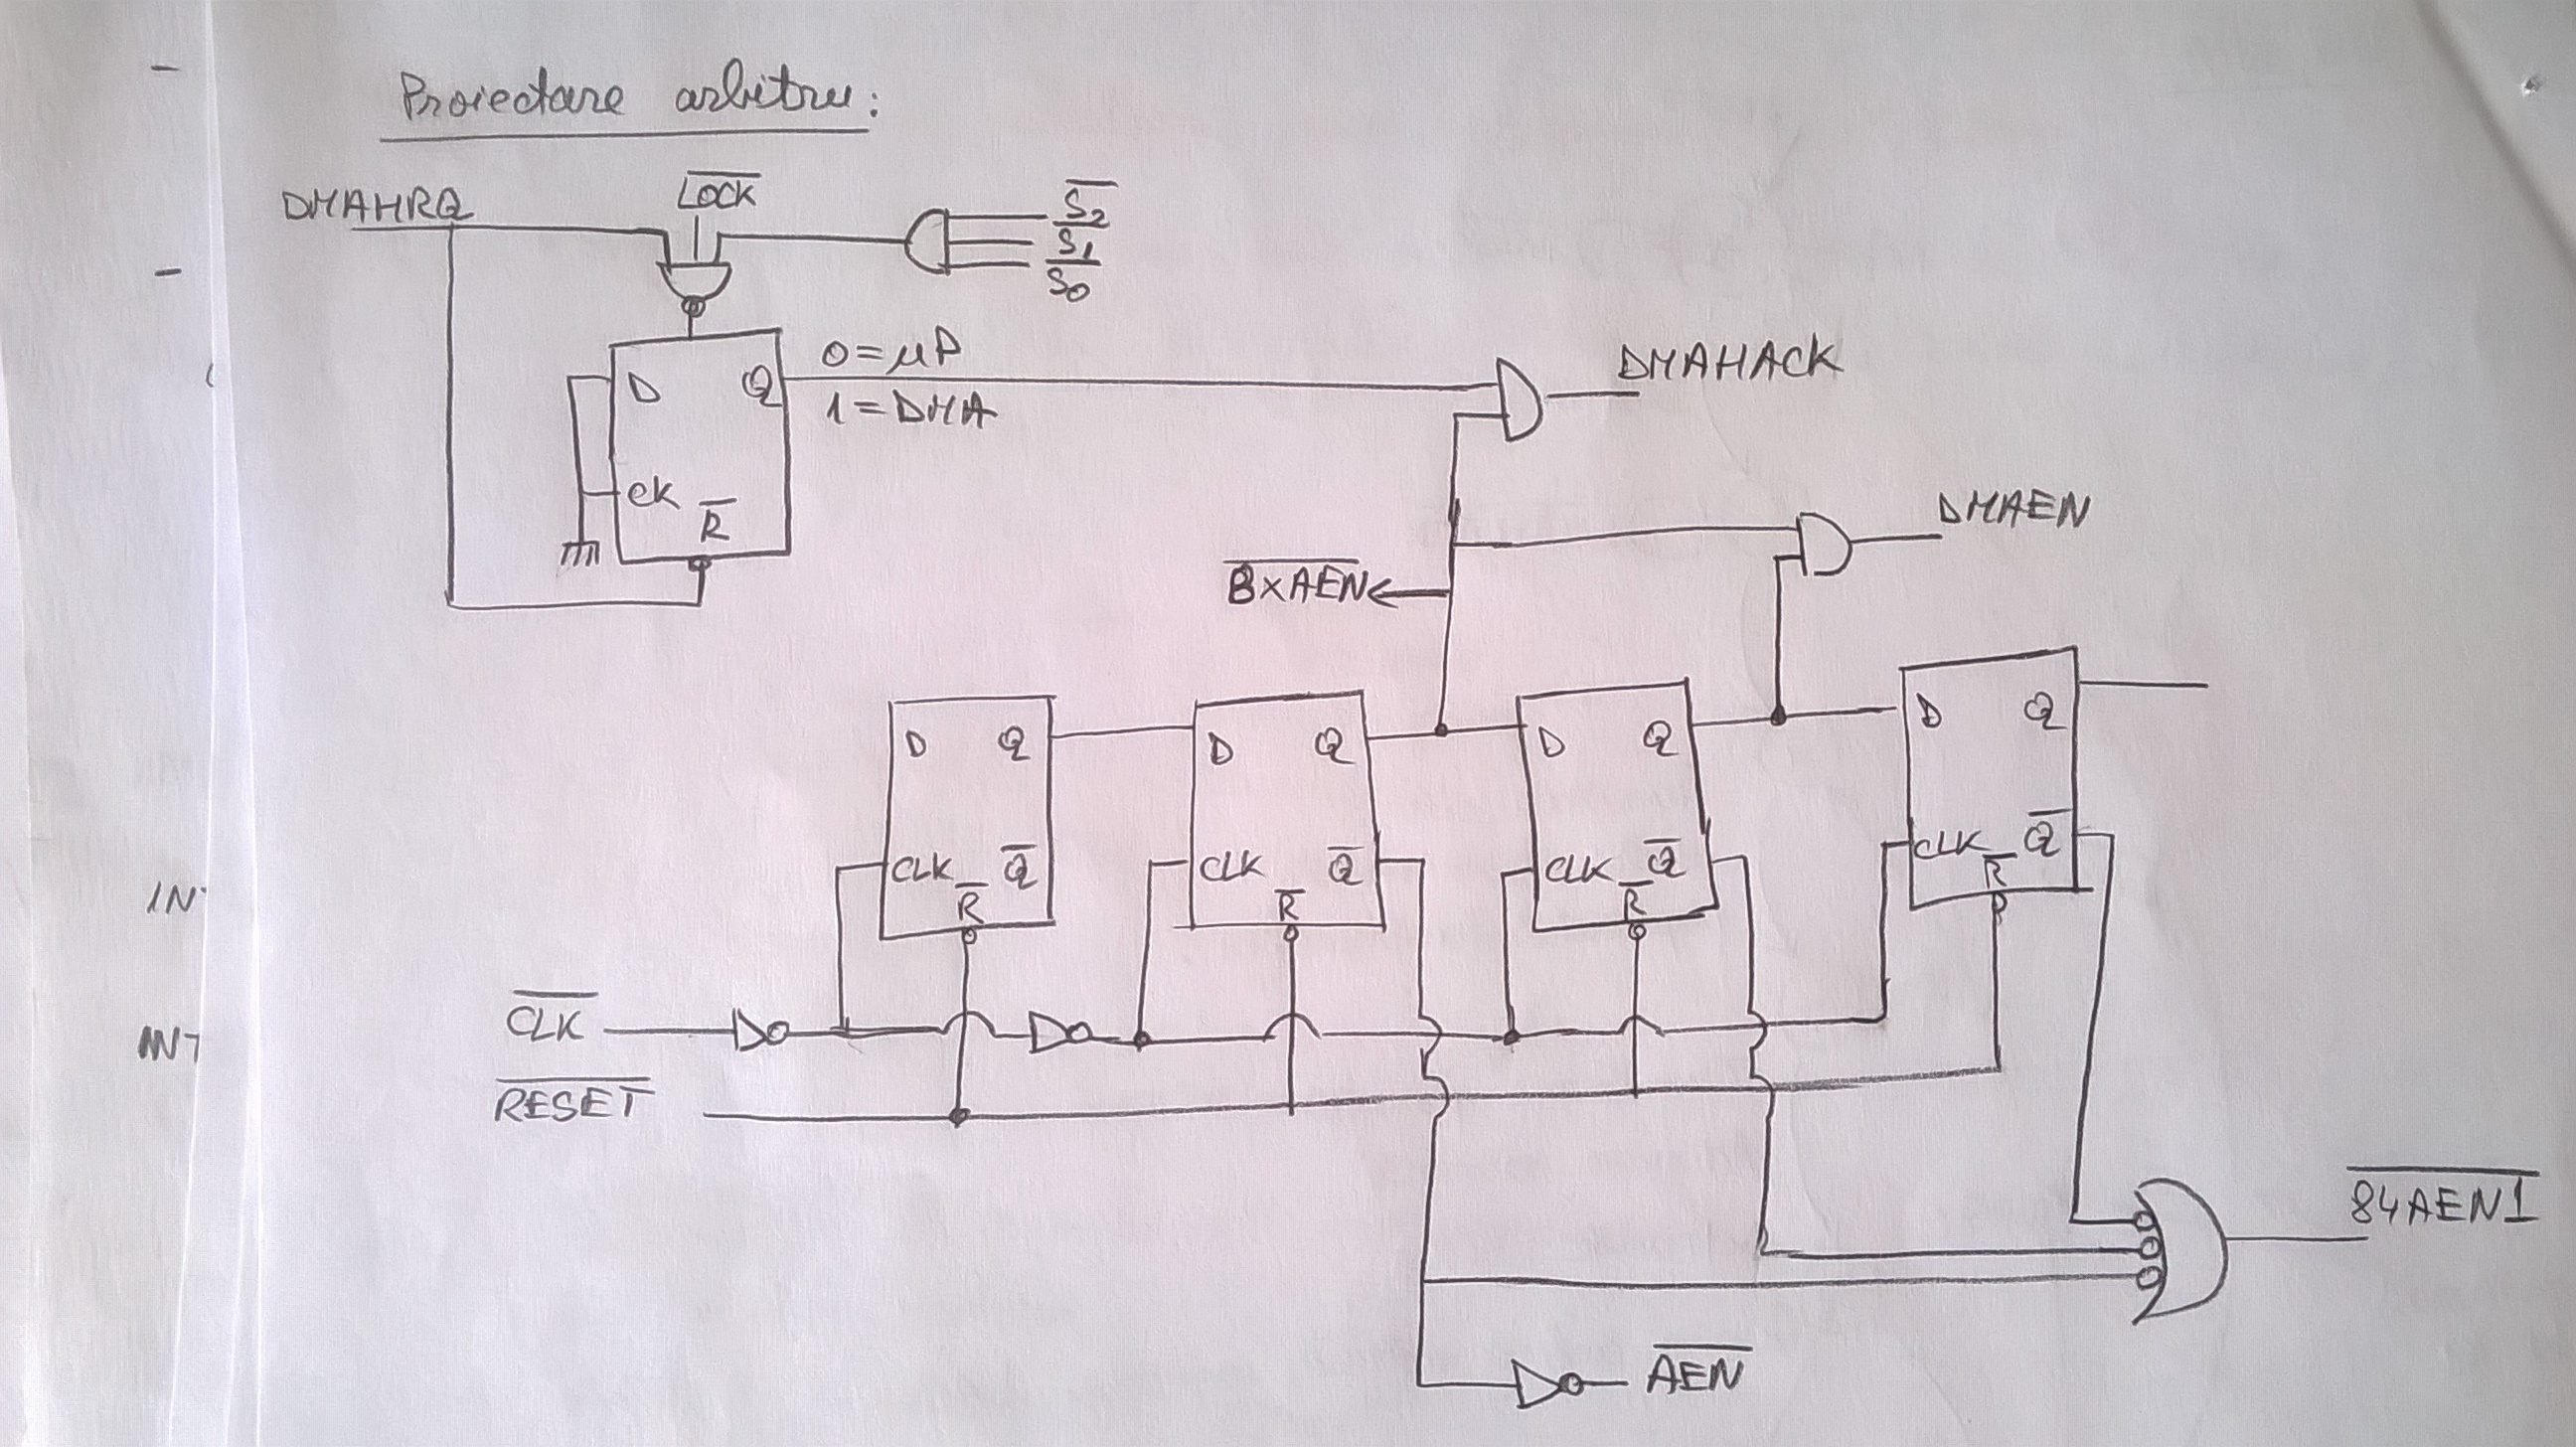 Proiectare arbitru:
DMAHRQ
L̅O̅C̅K̅
S̅₂
S̅₁
S̅₀
D Q
CK R̅
0=μP
1=DMA
DMAHACK
DMAEN
B̅x̅A̅E̅N̅
D Q
CLK R̅ Q̅
D Q
CLK R̅ Q̅
D Q
CLK R̅ Q̅
D Q
CLK R̅ Q̅
C̅L̅K̅
R̅E̅S̅E̅T̅
8̅4̅A̅E̅N̅1̅
A̅E̅N̅